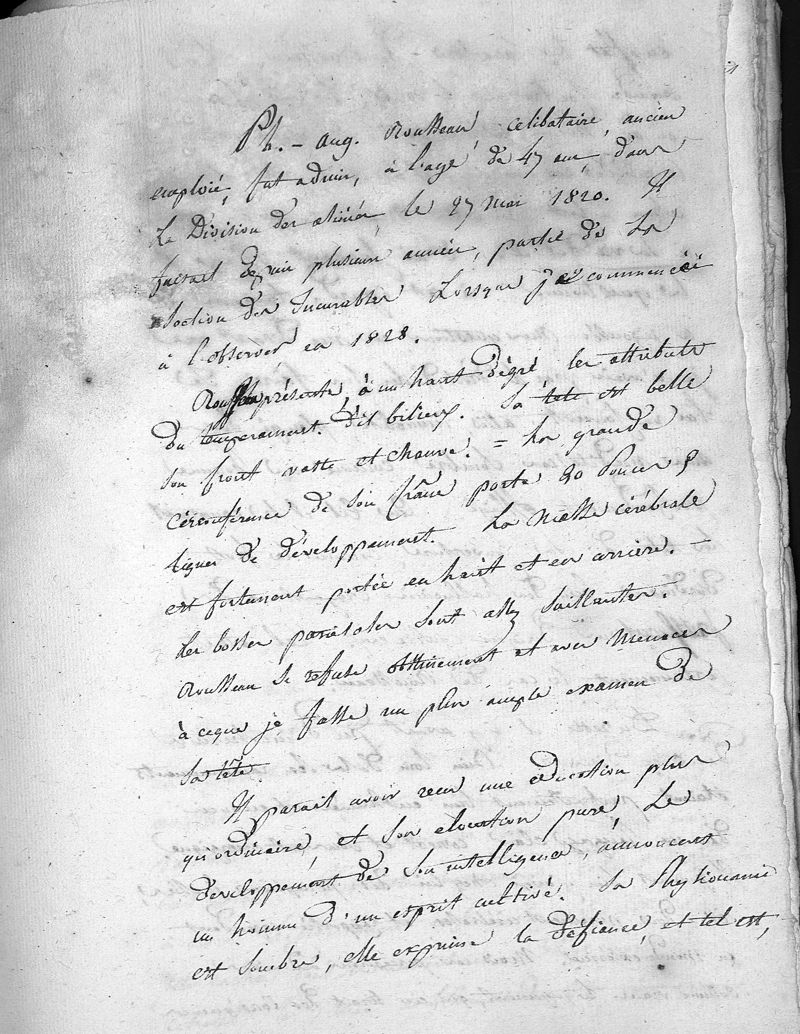 Ph. - Aug. Rousseau, celibataire, ancien
emploié, fut admis, à l'age de 47 ans dans
La Division des aliénés, le 27 mai 1820. Il
faisait depuis plusieurs années, partie de La
Section des Incurables Lorsque j'ai commencé
à l'observer, en 1828.
Rousseau présente, à un haut dégré les attributs
du temperament dit bilieux. Sa tete est belle
son front vaste et chauve. = La grande
circonférence de son Crâne porte 20 Pouces 9
lignes de développement. La Masse cérébrale
est fortement portée en haut et en arrière. -
Les bosses parietales sont assez saillantes.
Rousseau se refuse obstinement et avec menaces
à ceque je fasse un plus ample examen de
sa tête.
Il parait avoir recu une education plus
qu'ordinaire, et son elocution pure, Le
developpement de son intelligence, annoncent
un homme d'un esprit cultivé. Sa Physionomie
est sombre, elle exprime la defiance, et tel est,